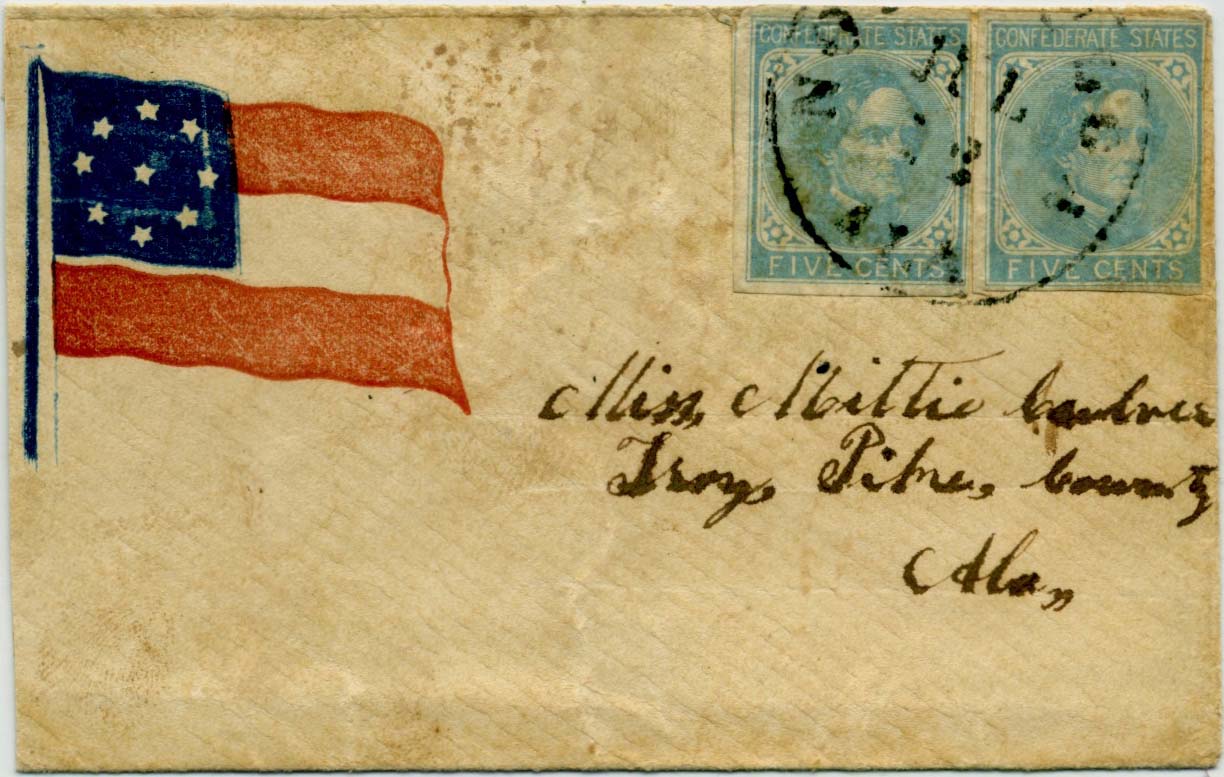 CONFEDERATE STATES
FIVE CENTS
CONFEDERATE STATES
FIVE CENTS
Miss, Mittie
Troy, Pike, County
Ala,,